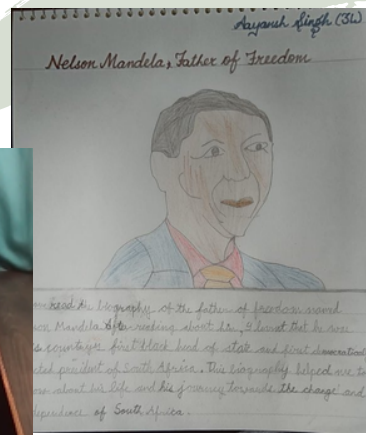 Aayansh Singh (3W)
Nelson Mandela, Father of Freedom
read the biography of the father of freedom named
son Mandela. After reading about him, I learnt that he was
country's first black head of state and first democratical
cted president of South Africa. This biography helped me to
about his life and his journey towards the change and
dependence of South Africa.